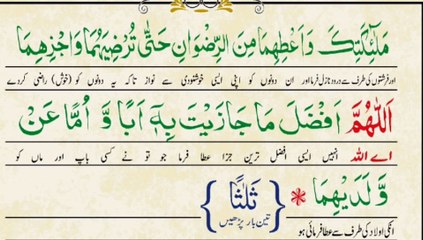 مَلٰٓئِكَتِكَ وَاَعْطِهِمَا مِنَ الرِّضْوَانِ حَتّٰى تُرْضِيَهُمَا وَاجْزِهِمَا
اور فرشتوں کی طرف سے درود نازل فرما اور ان دونوں کو اپنی ایسی خوشنودی سے نواز تاکہ یہ دونوں کو (خوش) راضی کردے
اَللّٰهُمَّ اَفْضَلَ مَا جَازَيْتَ بِهٖٓ اَبًا وَّ اُمًّا عَنْ
اے اللہ انہیں ایسی افضل ترین جزا عطا فرما جو تو نے کسی باپ اور ماں کو
وَّلَدِيْهِمَا * {ثَلٰثًا}
انکی اولاد کی طرف سے عطا فرمائی ہو تین بار پڑھیں